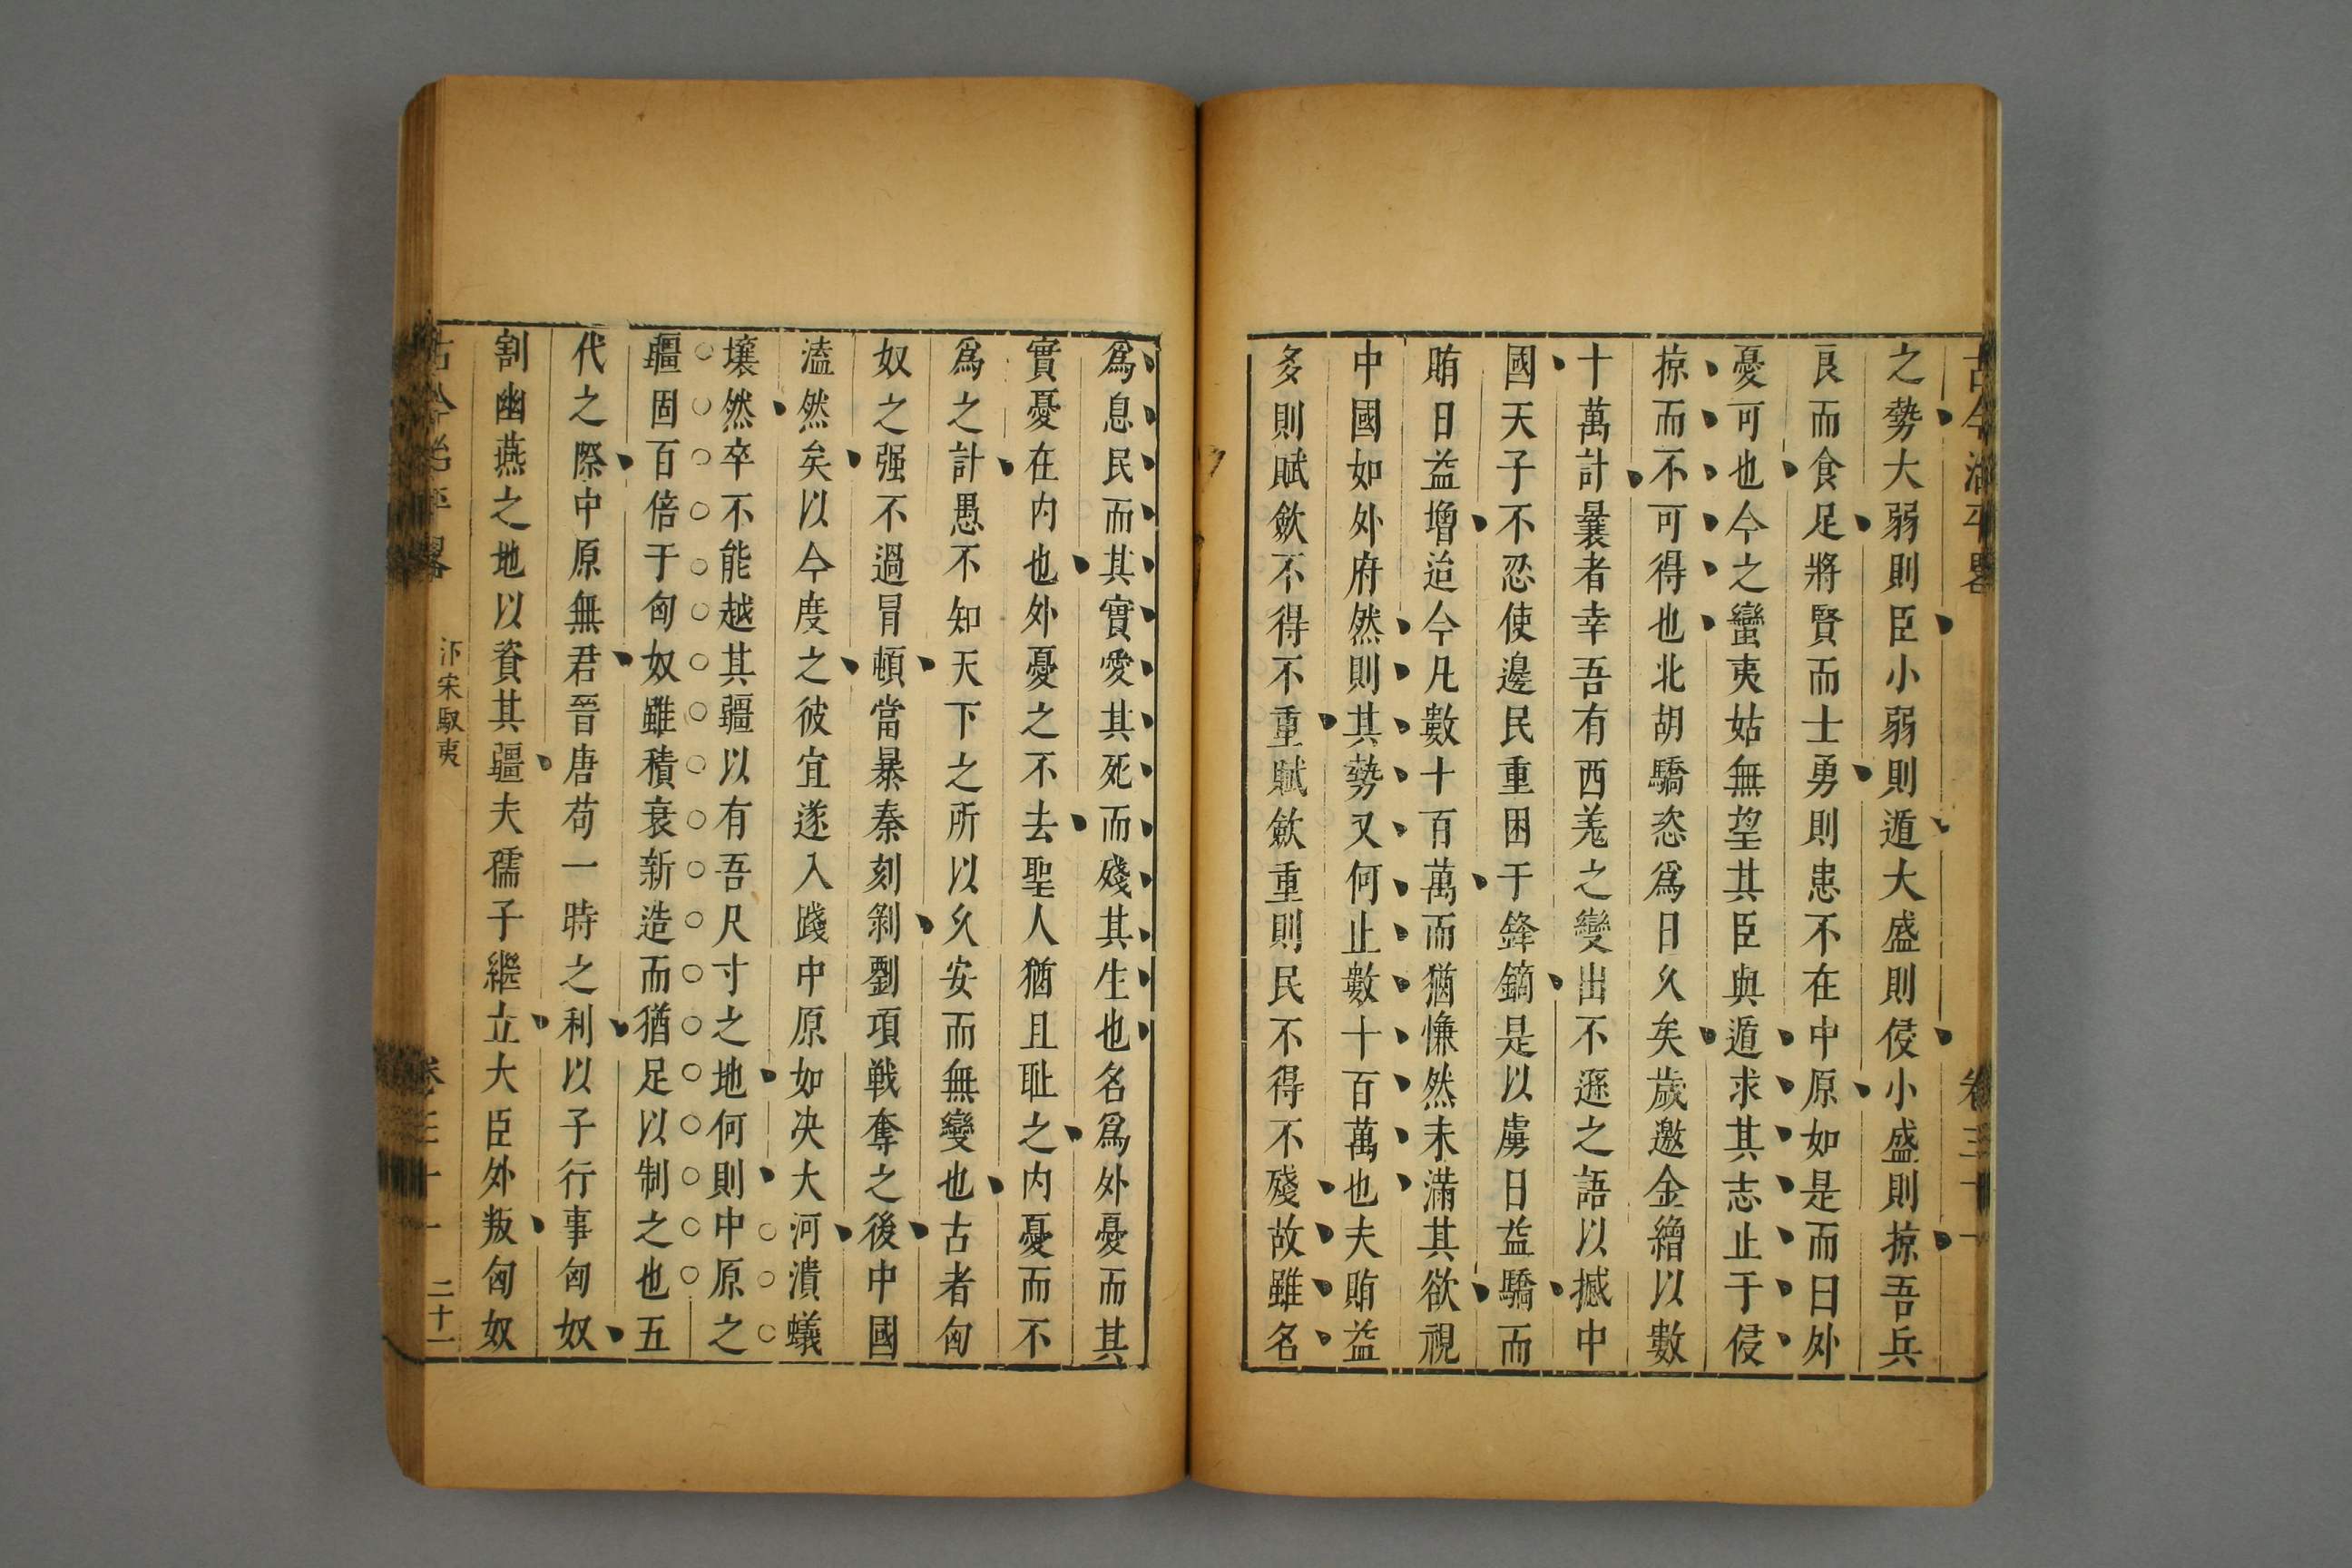 古今治平畧 卷三十一
之勢大弱則臣小弱則遁大盛則侵小盛則掠吾兵
良而食足將賢而士勇則患不在中原如是而曰外
憂可也今之蠻夷姑無望其臣與遁求其志止于侵
掠而不可得也北胡驕恣爲日久矣歲邀金繒以數
十萬計曩者幸吾有西羗之變出不遜之語以撼中
國天子不忍使邊民重困于鋒鏑是以虜日益驕而
賄日益增迨今凡數十百萬而猶慊然未滿其欲視
中國如外府然則其勢又何止數十百萬也夫賄益
多則賦斂不得不重賦斂重則民不得不殘故雖名
爲息民而其實愛其死而殘其生也名爲外憂而其
實憂在内也外憂之不去聖人猶且耻之内憂而不
爲之計愚不知天下之所以久安而無變也古者匈
奴之强不過冒頓當暴秦刻剝劉項戰奪之後中國
溘然矣以今度之彼宜遂入踐中原如决大河潰蟻
壤然卒不能越其疆以有吾尺寸之地何則中原之
疆固百倍于匈奴雖積衰新造而猶足以制之也五
代之際中原無君晉唐苟一時之利以子行事匈奴
割幽燕之地以資其疆夫孺子繼立大臣外叛匈奴
古今治平畧 汴宋馭夷 卷三十一 二十一